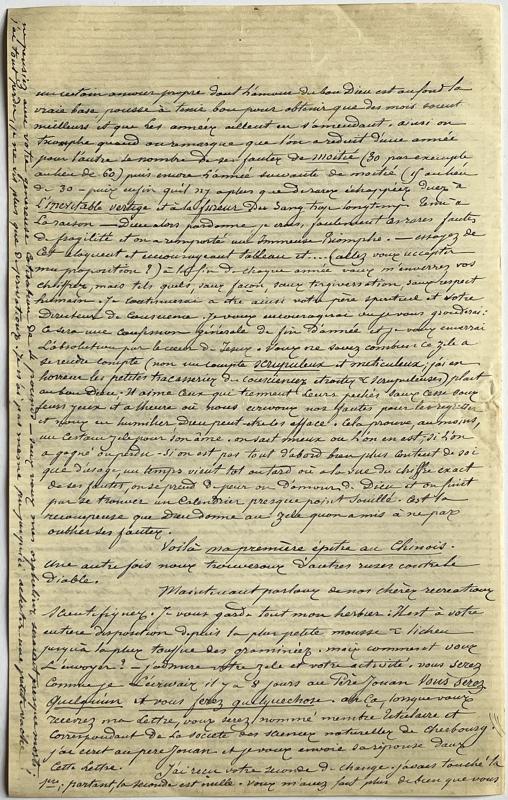 un certain amour propre dont l'amour du bon Dieu est au fond la
vraie base pousse à tenir bon pour obtenir que des mois soient
meilleurs et que les années aillent en s'amendant. aussi on
triomphe quand on remarque que l'on a réduit d'une année
pour l'autre le nombre de ses fautes de moitié (30 par exemple
au lieu de 60) puis encore l'année suivante de moitié (15 au lieu
de 30 - puis enfin qu'il n'y a plus que de rares échappées dues à
l'inévitable vertige et à la fureur du sang trop longtemps tenu à
la raison - Dieu alors pardonne, je crois, facilement ces rares fautes
de fragilité et on a remporté un immense triomphe. - essayez de
cet éloquent et encourageant tableau et.... (allez vous accepter
ma proposition ?) à la fin de chaque année vous m'enverrez vos
chiffres, mais tels quels, sans façon, sans tergiversation, sans respect
humain. Je continuerai à être ainsi votre père spirituel et votre
Directeur de Conscience. Je vous encouragerai ou je vous gronderai:
Ce sera une confession générale de fin d'année et je vous enverrai
l'absolution par le cœur de Jésus. Vous ne savez combien ce zèle à
se rendre compte (non un compte scrupuleux et méticuleux, j'ai en
horreur les petites tracasseries de consciences étroites & scrupuleuses) plait
au bon Dieu. Il aime ceux qui tiennent leurs péchés sans cesse sous
leurs yeux et à l'heure où nous écrivons nos fautes pour les regretter
et nous en humilier Dieu peut-être les efface. Cela prouve, au moins,
un certain zèle pour son âme. on sait mieux où l'on en est, si l'on
a gagné ou perdu. Si on est pas tout d'abord bien plus content de soi
que d'usage, un temps vient tôt ou tard où à la vue du chiffre exact
de ses fautes, on se prend de peur ou d'amour de Dieu et on finit
par se trouver un Calendrier presque point souillé. C'est la
récompense que Dieu donne au zèle qu'on a mis à ne pas
oublier ses fautes.
Voilà ma première épitre au Chinois.
Une autre fois nous trouverons d'autres ruses contre le
diable.
Maintenant parlons de nos chères récréations
scientifiques. Je vous garde tout mon herbier: Il est à votre
entière disposition depuis la plus petite mousse & lichen
jusqu'à la plus touffue des graminées, mais comment vous
l'envoyer ? - j'admire votre zèle et votre activité. vous serez
comme je l'écrivais il y a 8 jours au Père Jouan vous serez
quelqu'un et vous ferez quelque chose. or çà lorsque vous
recevrez ma lettre, vous serez nommé membre titulaire et
correspondant de la Société des sciences naturelles de Cherbourg.
j'ai écrit au père Jouan et je vous envoie sa réponse dans
cette lettre.
J'ai reçu votre seconde de change. j'avais touché la
1ère; partant la seconde est nulle. Vous m'avez fait plus de bien que vous